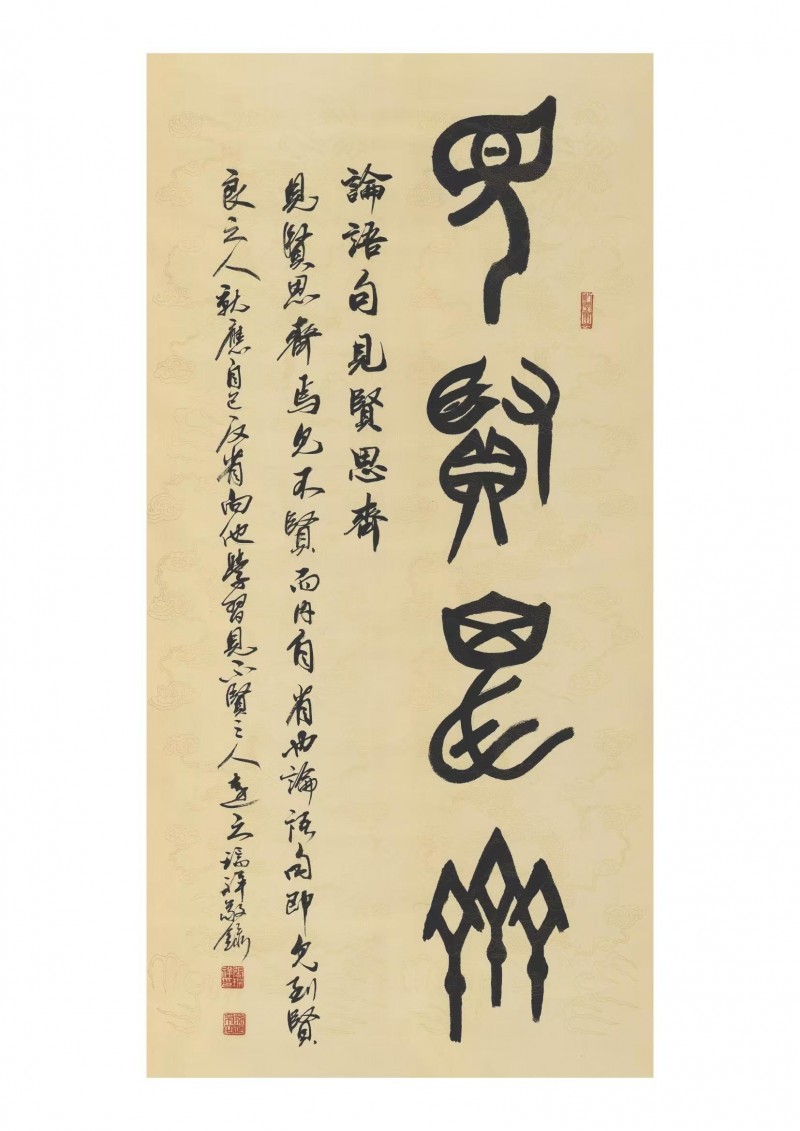 見賢思齊
論語句見賢思齊
見賢思齊焉見不賢而内自省也論語句即見到賢
良之人就應自己反省向他學習見不賢之人遠之瑞祥敬錄